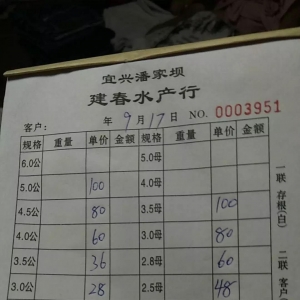 宜兴潘家坝
建春水产行
客户: 年 9 月 17 日 NO. 0003951
规格 重量 单价 金额 规格 重量 单价 金额
6.0公 5.0母
5.0公 100 4.0母
4.5公 80 3.5母 100
4.0公 60 3.0母 80
3.5公 36 2.8母 60
3.0公 28 2.5母 48
一联 存根(白)
二联 客户